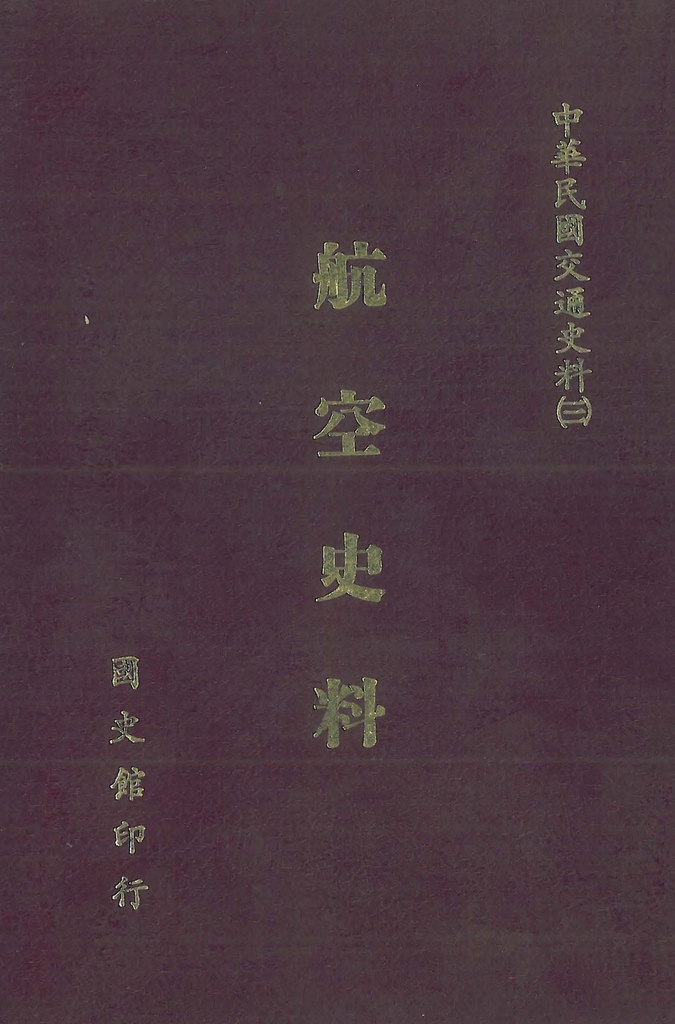 中華民國交通史料㈡
航空史料
國史館印行